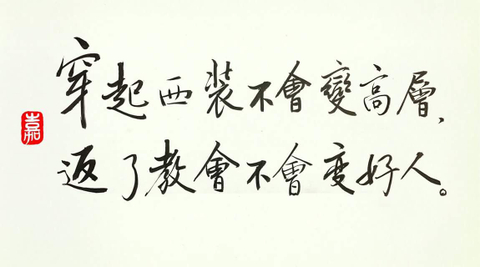 穿起西装不會變高層,
返了教會不會变好人。
嘉